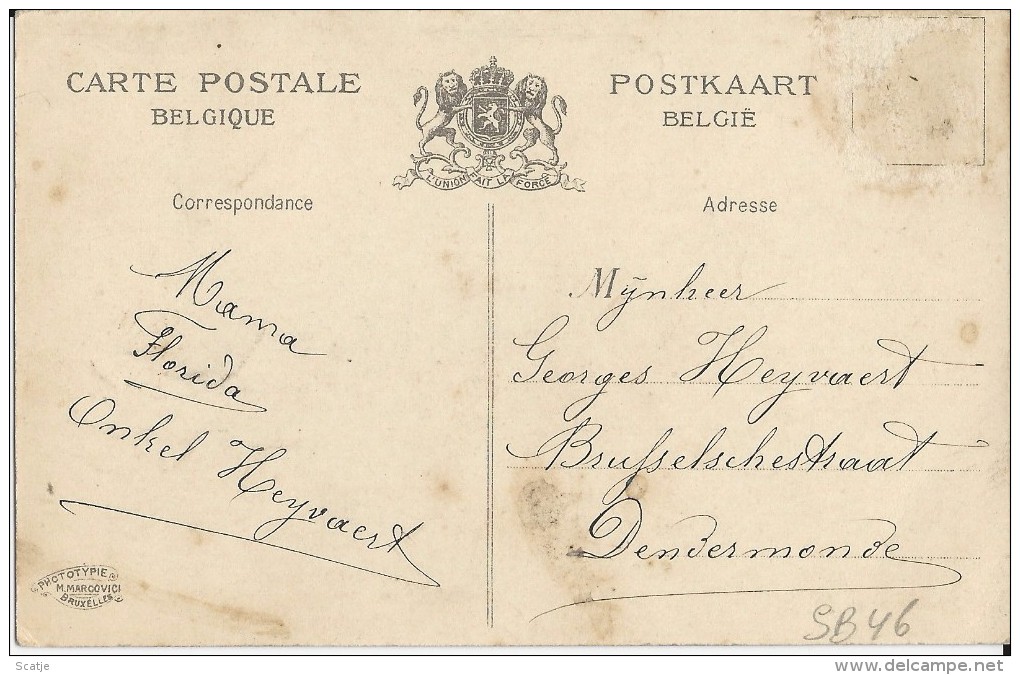 CARTE POSTALE
BELGIQUE
L'UNION FAIT LA FORCE
POSTKAART
BELGIË
Correspondance
Adresse
Mama
Florida
Onkel Heyvaert
Mijnheer
Georges Heyvaert
Brusselschestraat
Dendermonde
PHOTOTYPIE
M. MARCOVICI
BRUXELLES
SB46
Scatje
http://www.delcampe.net